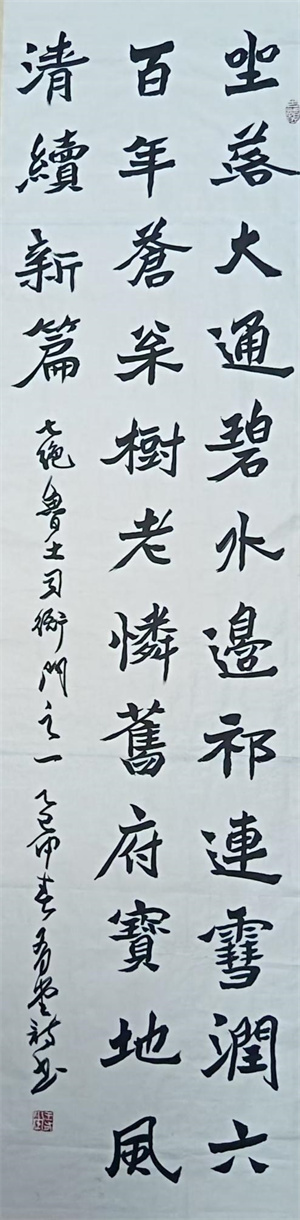 坐落大通碧水邊祁連雪潤六
百年蒼桑樹老憐舊府寶地風
清續新篇
七绝鲁土司衙門之一 乙巳仲春